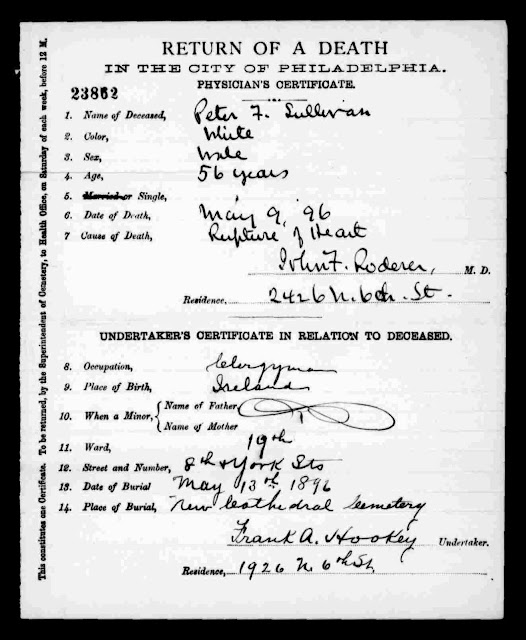 RETURN OF A DEATH
IN THE CITY OF PHILADELPHIA.
PHYSICIAN'S CERTIFICATE.
23862
1. Name of Deceased, Peter F. Sullivan
2. Color, White
3. Sex, Male
4. Age, 56 years
5. Married or Single,
6. Date of Death, May 9, '96
7 Cause of Death, Rupture of Heart
John F. Roderer, M. D.
Residence, 2426 N. 6th. St.
UNDERTAKER'S CERTIFICATE IN RELATION TO DECEASED.
8. Occupation, Clergyman
9. Place of Birth, Ireland
10. When a Minor, { Name of Father
Name of Mother
11. Ward, 19th
12. Street and Number, 8th & York Sts
13. Date of Burial May 13th 1896
14. Place of Burial, New Cathedral Cemetery
Frank A. Hookey Undertaker.
Residence, 1926 N. 6th St.
This constitutes one Certificate. To be returned, by the Superintendent of Cemetery, to Health Office, on Saturday of each week, before 12 M.